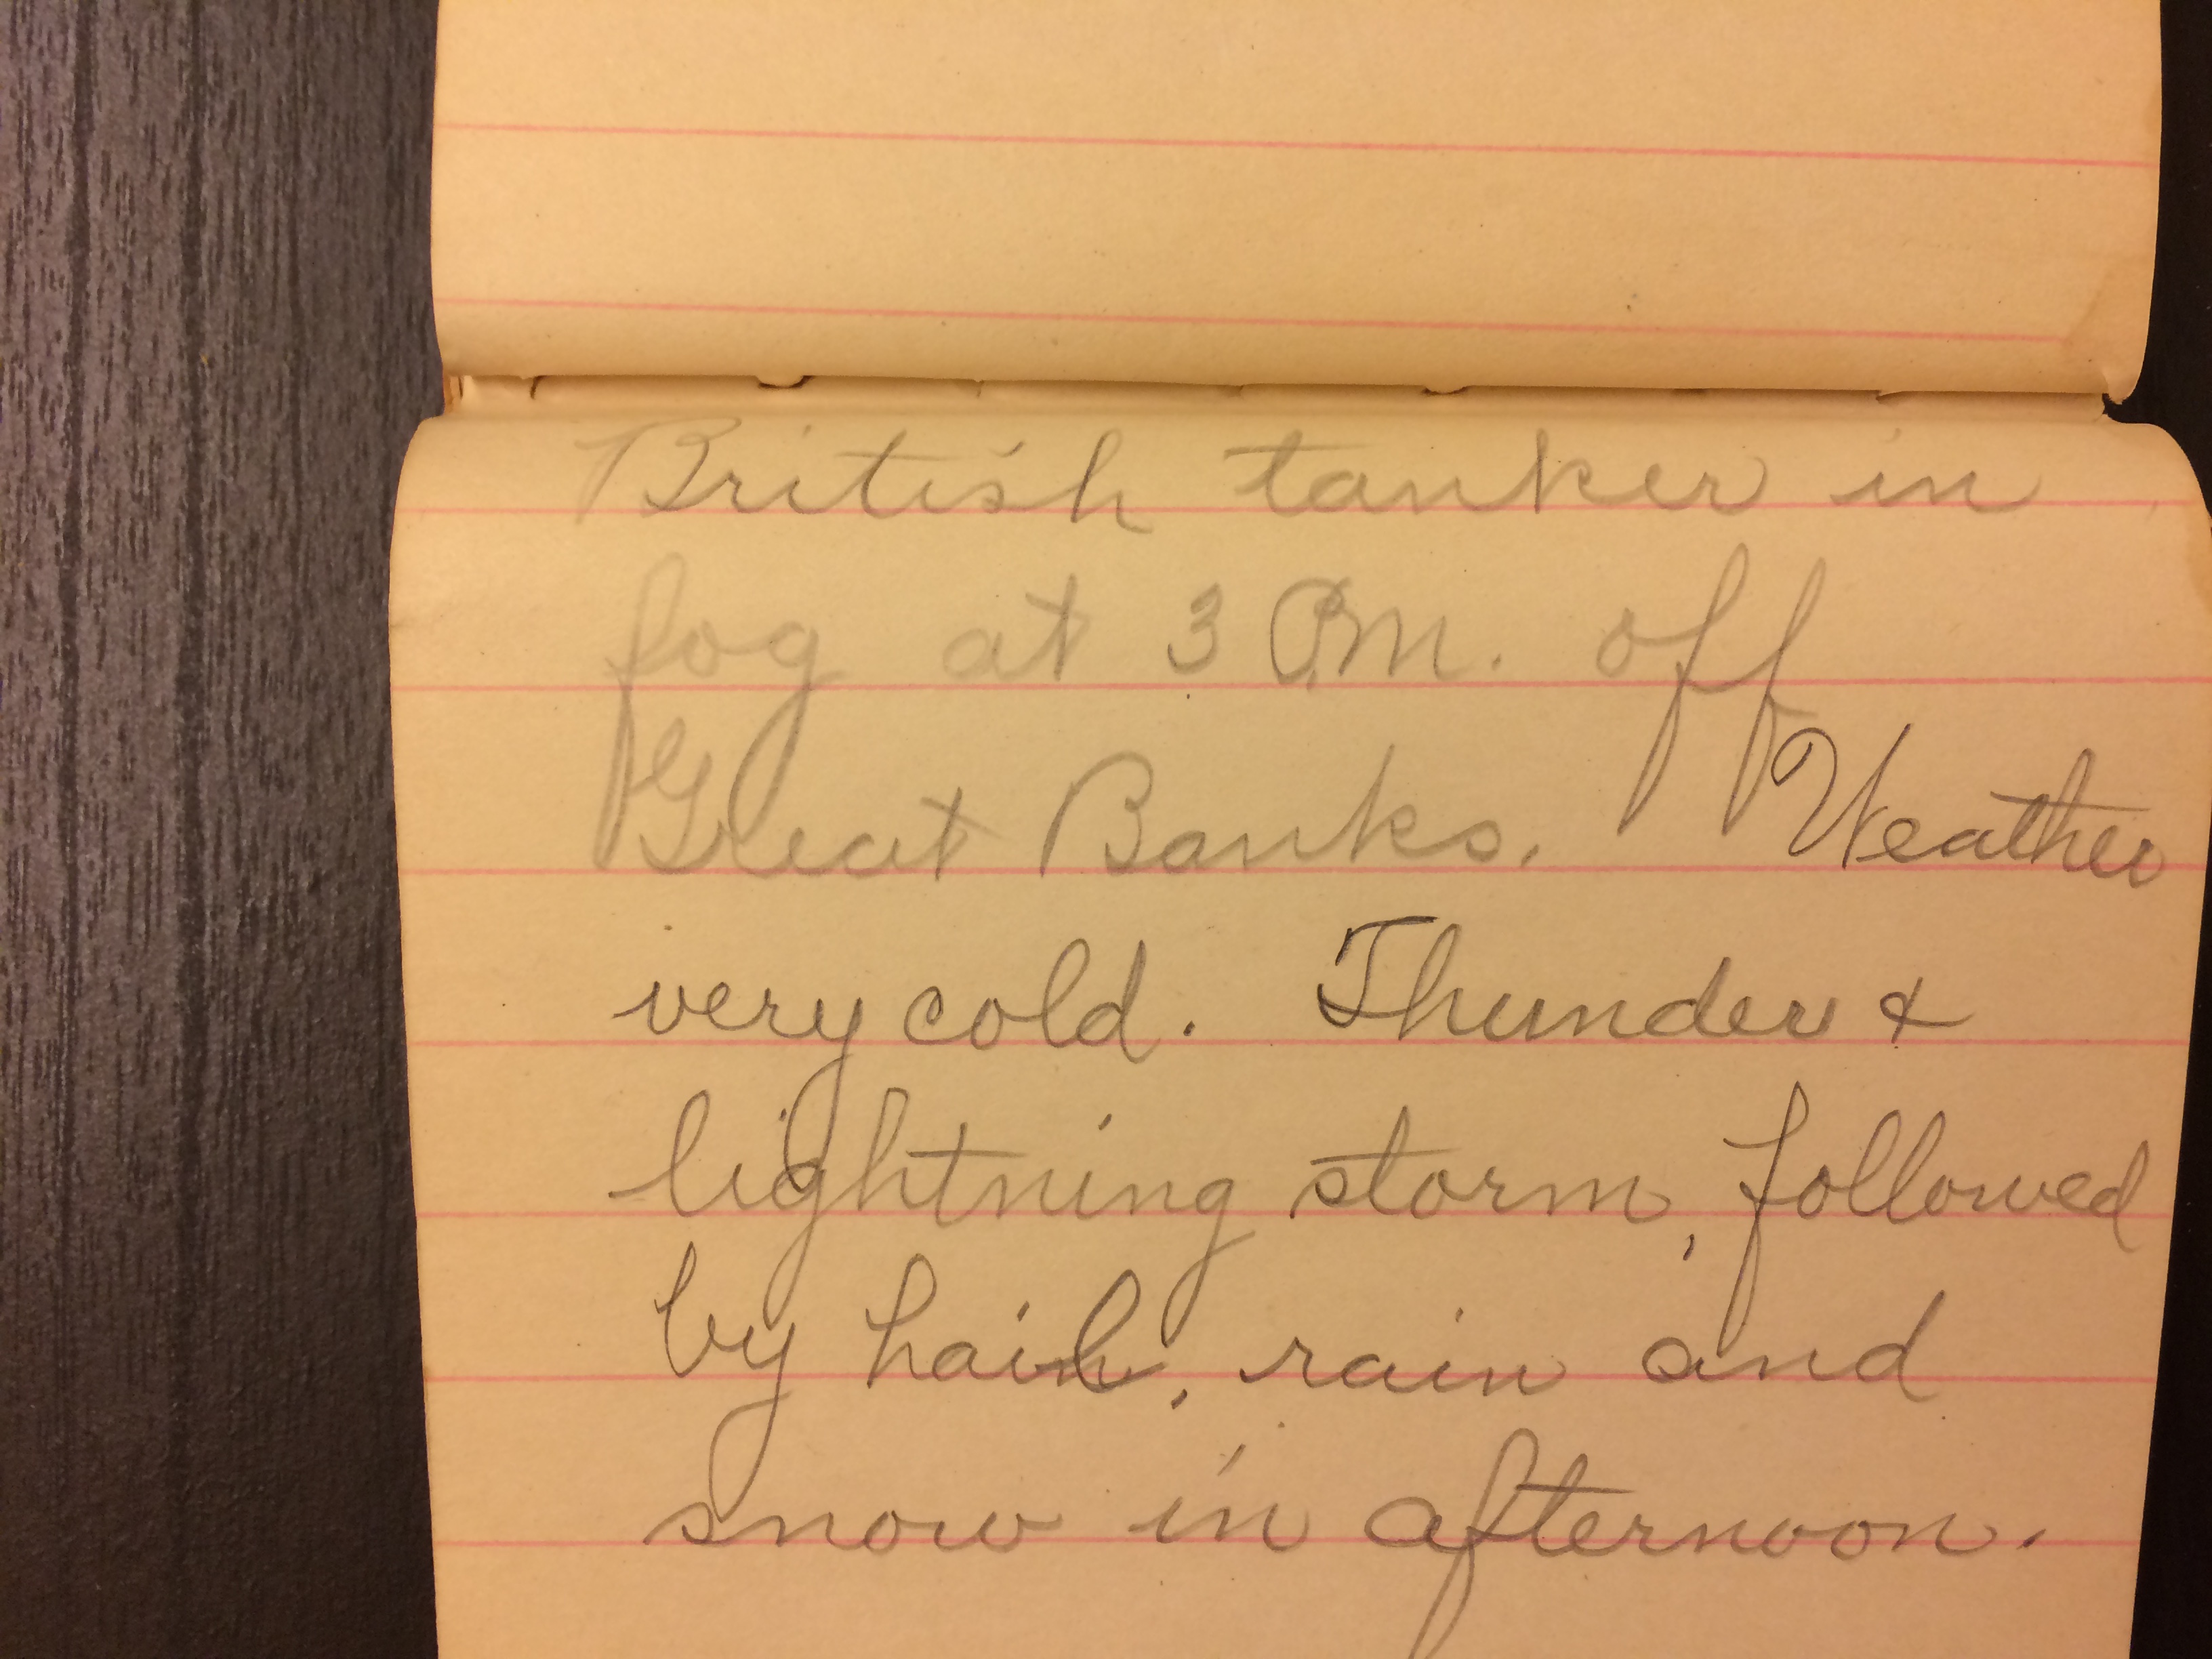 British tanker in
fog at 3 P.M. off
Great Banks. Weather
very cold. Thunder &
lightning storm, followed
by hail, rain and
snow in afternoon.